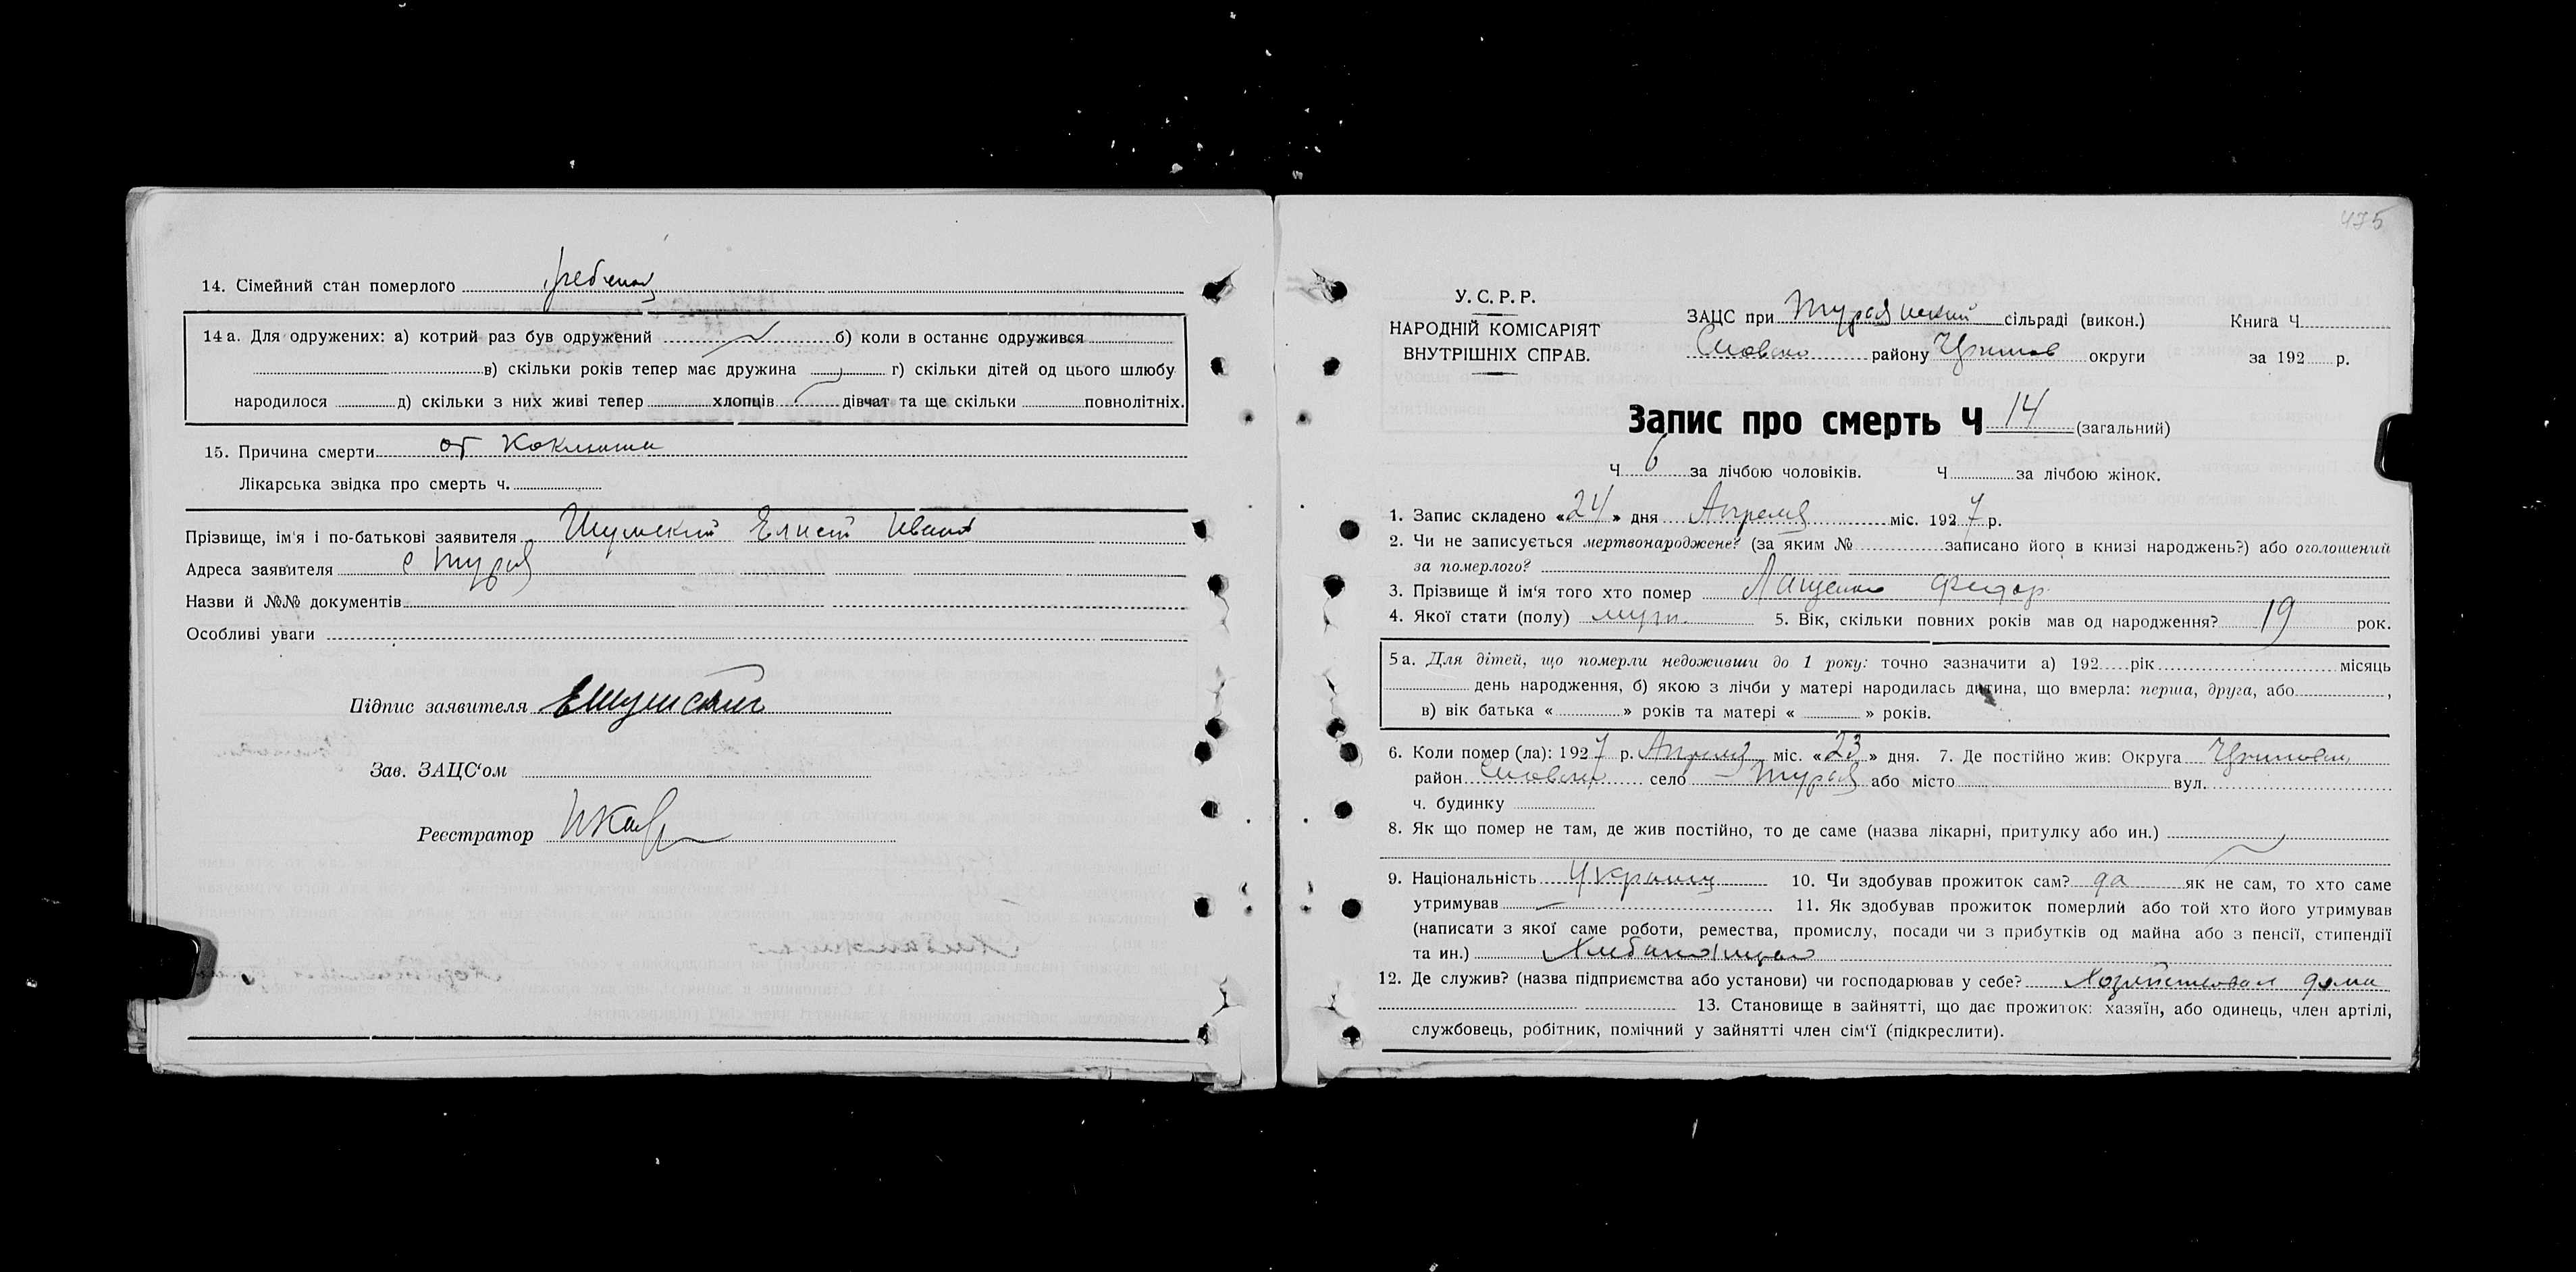 14. Сімейний стан померлого ребенок
14 а. Для одружених: а) котрий раз був одружений б) коли в останнє одружився
в) скільки років тепер має дружина г) скільки дітей од цього шлюбу
народилося д) скільки з них живі тепер хлопців дівчат та ще скільки повнолітніх.
15. Причина смерти от Коклюша
Лікарська звідка про смерть ч.
Прізвище, ім'я і по-батькові заявителя Шумский Елисей Иван
Адреса заявителя с Турья
Назви й №№ документів
Особливі уваги
Підпис заявителя ЕШумский
Зав. ЗАЦС'ом
Реєстратор
475
У. С. Р. Р.
НАРОДНІЙ КОМІСАРІЯТ
ВНУТРІШНІХ СПРАВ.
ЗАЦС при сільраді (викон.) Книга Ч
Сновско району округи за 192 р.
Запис про смерть Ч 14 (загальний)
Ч 6 за лічбою чоловіків. Ч за лічбою жінок.
1. Запис складено «24» дня Апреля міс. 1927 р.
2. Чи не записується мертвонароджене? (за яким № записано його в книзі народжень?) або оголошений
за померлого?
3. Прізвище й ім'я того хто помер Лащенко Федор
4. Якої стати (полу) муж. 5. Вік, скільки повних років мав од народження? 19 рок.
5 а. Для дітей, що померли недоживши до 1 року: точно зазначити а) 192 рік місяць
день народження, б) якою з лічби у матері народилась дитина, що вмерла: перша, друга, або ,
в) вік батька « » років та матері « » років.
6. Коли помер (ла): 1927 р. Апреля міс. «23» дня. 7. Де постійно жив: Округа
район Сновск село Турья або місто вул.
ч. будинку
8. Як що помер не там, де жив постійно, то де саме (назва лікарні, притулку або ин.)
9. Національність Украинец 10. Чи здобував прожиток сам? да як не сам, то хто саме
утримував 11. Як здобував прожиток померлий або той хто його утримував
(написати з якої саме роботи, ремества, промислу, посади чи з прибутків од майна або з пенсії, стипендії
та ин.)
12. Де служив? (назва підприємства або установи) чи господарював у себе? Хозяйствовал дома
13. Становище в зайнятті, що дає прожиток: хазяїн, або одинець, член артілі,
службовець, робітник, помічний у зайнятті член сім'ї (підкреслити).